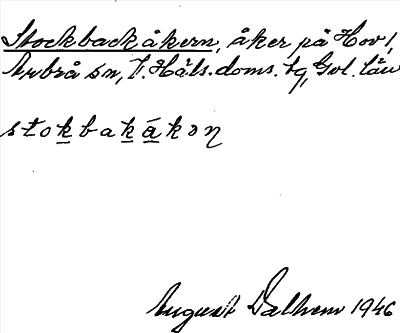 Stockbackåkern, åker på Hov 1,
Arbrå sn, V. Häls. doms. tg, Gvl. län
stokbakákon
August Dalhem 1946